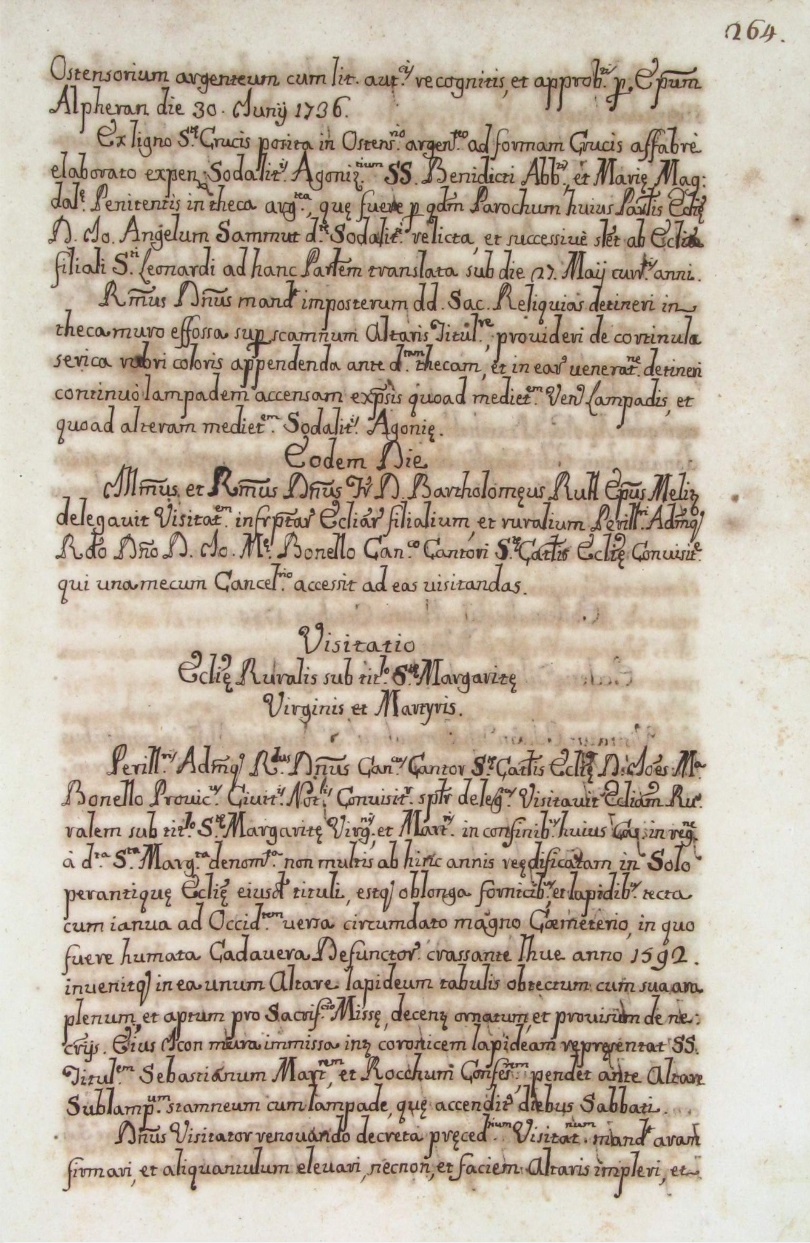 264.
Ostensorium argenteum cum lit. aut.cis recognitis, et approb.tis p. Epum
Alpheran die 30. Junij 1736.
Ex ligno S.te Crucis posita in Ostens.rio argen.teo ad formam Crucis affabrè
elaborato expen. Sodalit.is Agoniz.tium SS. Benidicti Abb.is, et Marię Mag:
dal.e Penitentis in theca arg.tea, quę fuere p. qdm Parochum huius Par.lis Eclię
D. Jo. Angelum Sammut d.e Sodalit.i relicta, et successivè st. ab Eclia
filiali S.ti Leonardi ad hanc Par.lem translata sub die 27. Maij curr.tis anni.
Rmus Dnus mand.t imposterum dd. Sac. Reliquias detineri in
theca muro effossa sup. scamnum Altaris Titul.re, provideri de cortinula
serica rubri coloris appendenda ante d.tam thecam, et in ear. venerat.ne detineri
continuò lampadem accensam expsis quoad mediet.em Ven. Lampadis, et
quoad alteram mediet.em Sodalit.is Agonię.
Eodem Die
Illmus, et Rmus Dnus Fr. D. Bartholomęus Rull Epus Melit.
delegavit Visitat.em infrptar. Ecliar. filialium, et ruralium Perill.ri Admq
Rdo Dno D. Jo. M.e Bonello Can.co Cantori S.te Cat.lis Eclię Convisit.
qui una mecum Cancel.rio accessit ad eas visitandas.
Visitatio
Eclię Ruralis sub tit.lo S.te Margaritę
Virginis et Martyris.
Perill.ris Admq R.dus Dnus Can.cus Cantor S.te Cat.lis Eclię D. Joes Ma
Bonello Provic.us Civit.is Not.lis Convisit.r sptr deleg.us Visitavit Ecliam Ru:
ralem sub tit.lo S.te Margaritę Virg.nis, et Mart.is in confinib.s huius in reg.ne
à d.ta S.ta Marg.ta denom.ta non multis ab hinc annis reędificatam in Solo
perantiquę Eclię eiusd. tituli, estq oblonga fornicib.s, et lapidib.s tecta
cum ianua ad Occid.tem versa circumdato magno Cœmeterio, in quo
fuere humata Cadavera Defunctor. crassante lhue anno 1592.
invenitq in ea unum Altare lapideum tabulis obtectum cum sua ara
plenum, et aptum pro Sacrif.cio Missę, decenr ornatum, et provisum de ne:
crijs. Eius Icon mura immissa intr coronicem lapideam repręsentat SS.
Titul.em Sebastianum Mart.rem, et Rocchum Confes.rem, pendet ante Altare
Sublamp.um stamneum cum lampade, quę accendit.r diebus Sabbati.
Dnus Visitator renovando decreta pręced.tium Visitat.nium mand.t aram
firmari, et aliquantulum elevari, necnon, et faciem Altaris impleri, et